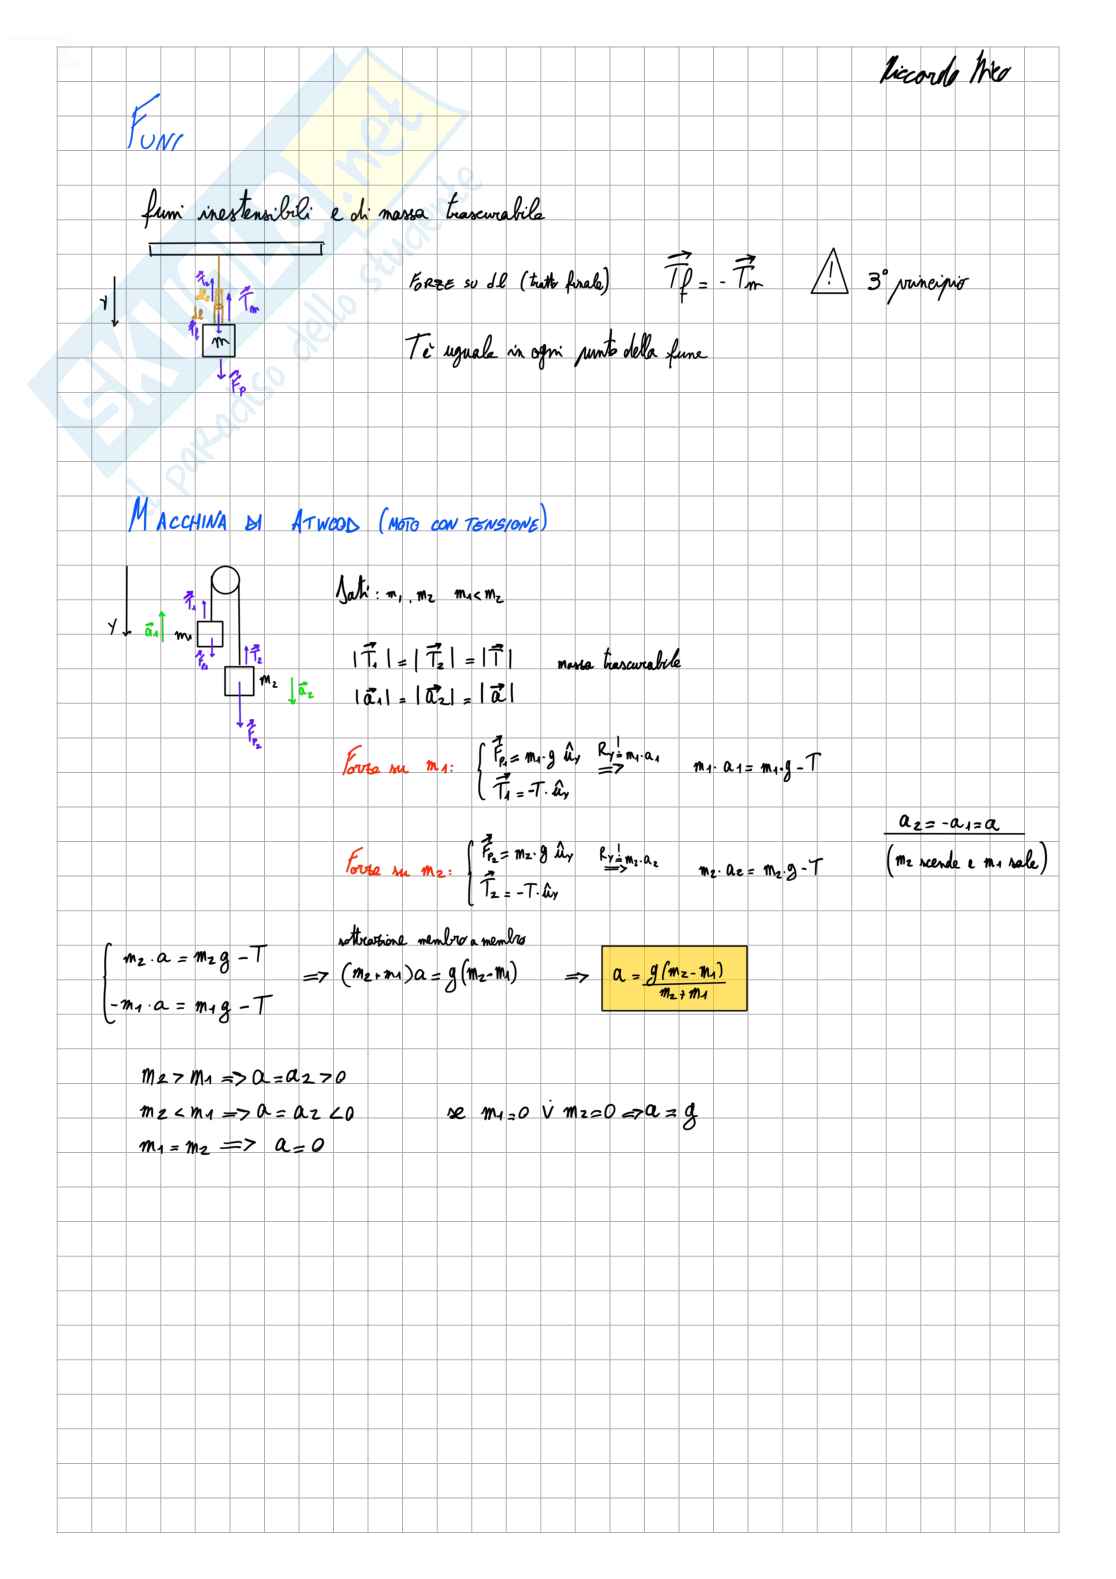 Riccardo Nico
FUNI
funi inestensibili e di massa trascurabile
FORZE SU dl (tratto finale) T⃗f = - T⃗m ! 3° principio
Y
T⃗m
dl
m
F⃗p
T è uguale in ogni punto della fune
SKUOLA.net
il paradiso dello studente
MACCHINA DI ATWOOD (MOTO CON TENSIONE)
Y
T⃗1
a⃗1
m1
F⃗p1
T⃗2
m2
a⃗2
F⃗p2
Dati: m1, m2 m1<m2
|T⃗1| = |T⃗2| = |T⃗| massa trascurabile
|a⃗1| = |a⃗2| = |a⃗|
Forze su m1: { F⃗p1 = m1·g ûy Ry = m1·a1 => m1·a1 = m1·g - T
T⃗1 = -T·ûy
a2 = -a1 = a
(m2 scende e m1 sale)
Forze su m2: { F⃗p2 = m2·g ûy Ry = m2·a2 => m2·a2 = m2·g - T
T⃗2 = -T·ûy
sottrazione membro a membro
{ m2·a = m2g - T => (m2+m1)a = g(m2-m1) => a = g(m2-m1) / m2+m1
-m1·a = m1g - T
m2 > m1 => a = a2 > 0
m2 < m1 => a = a2 < 0 se m1=0 v̇ m2=0 => a = g
m1 = m2 => a = 0